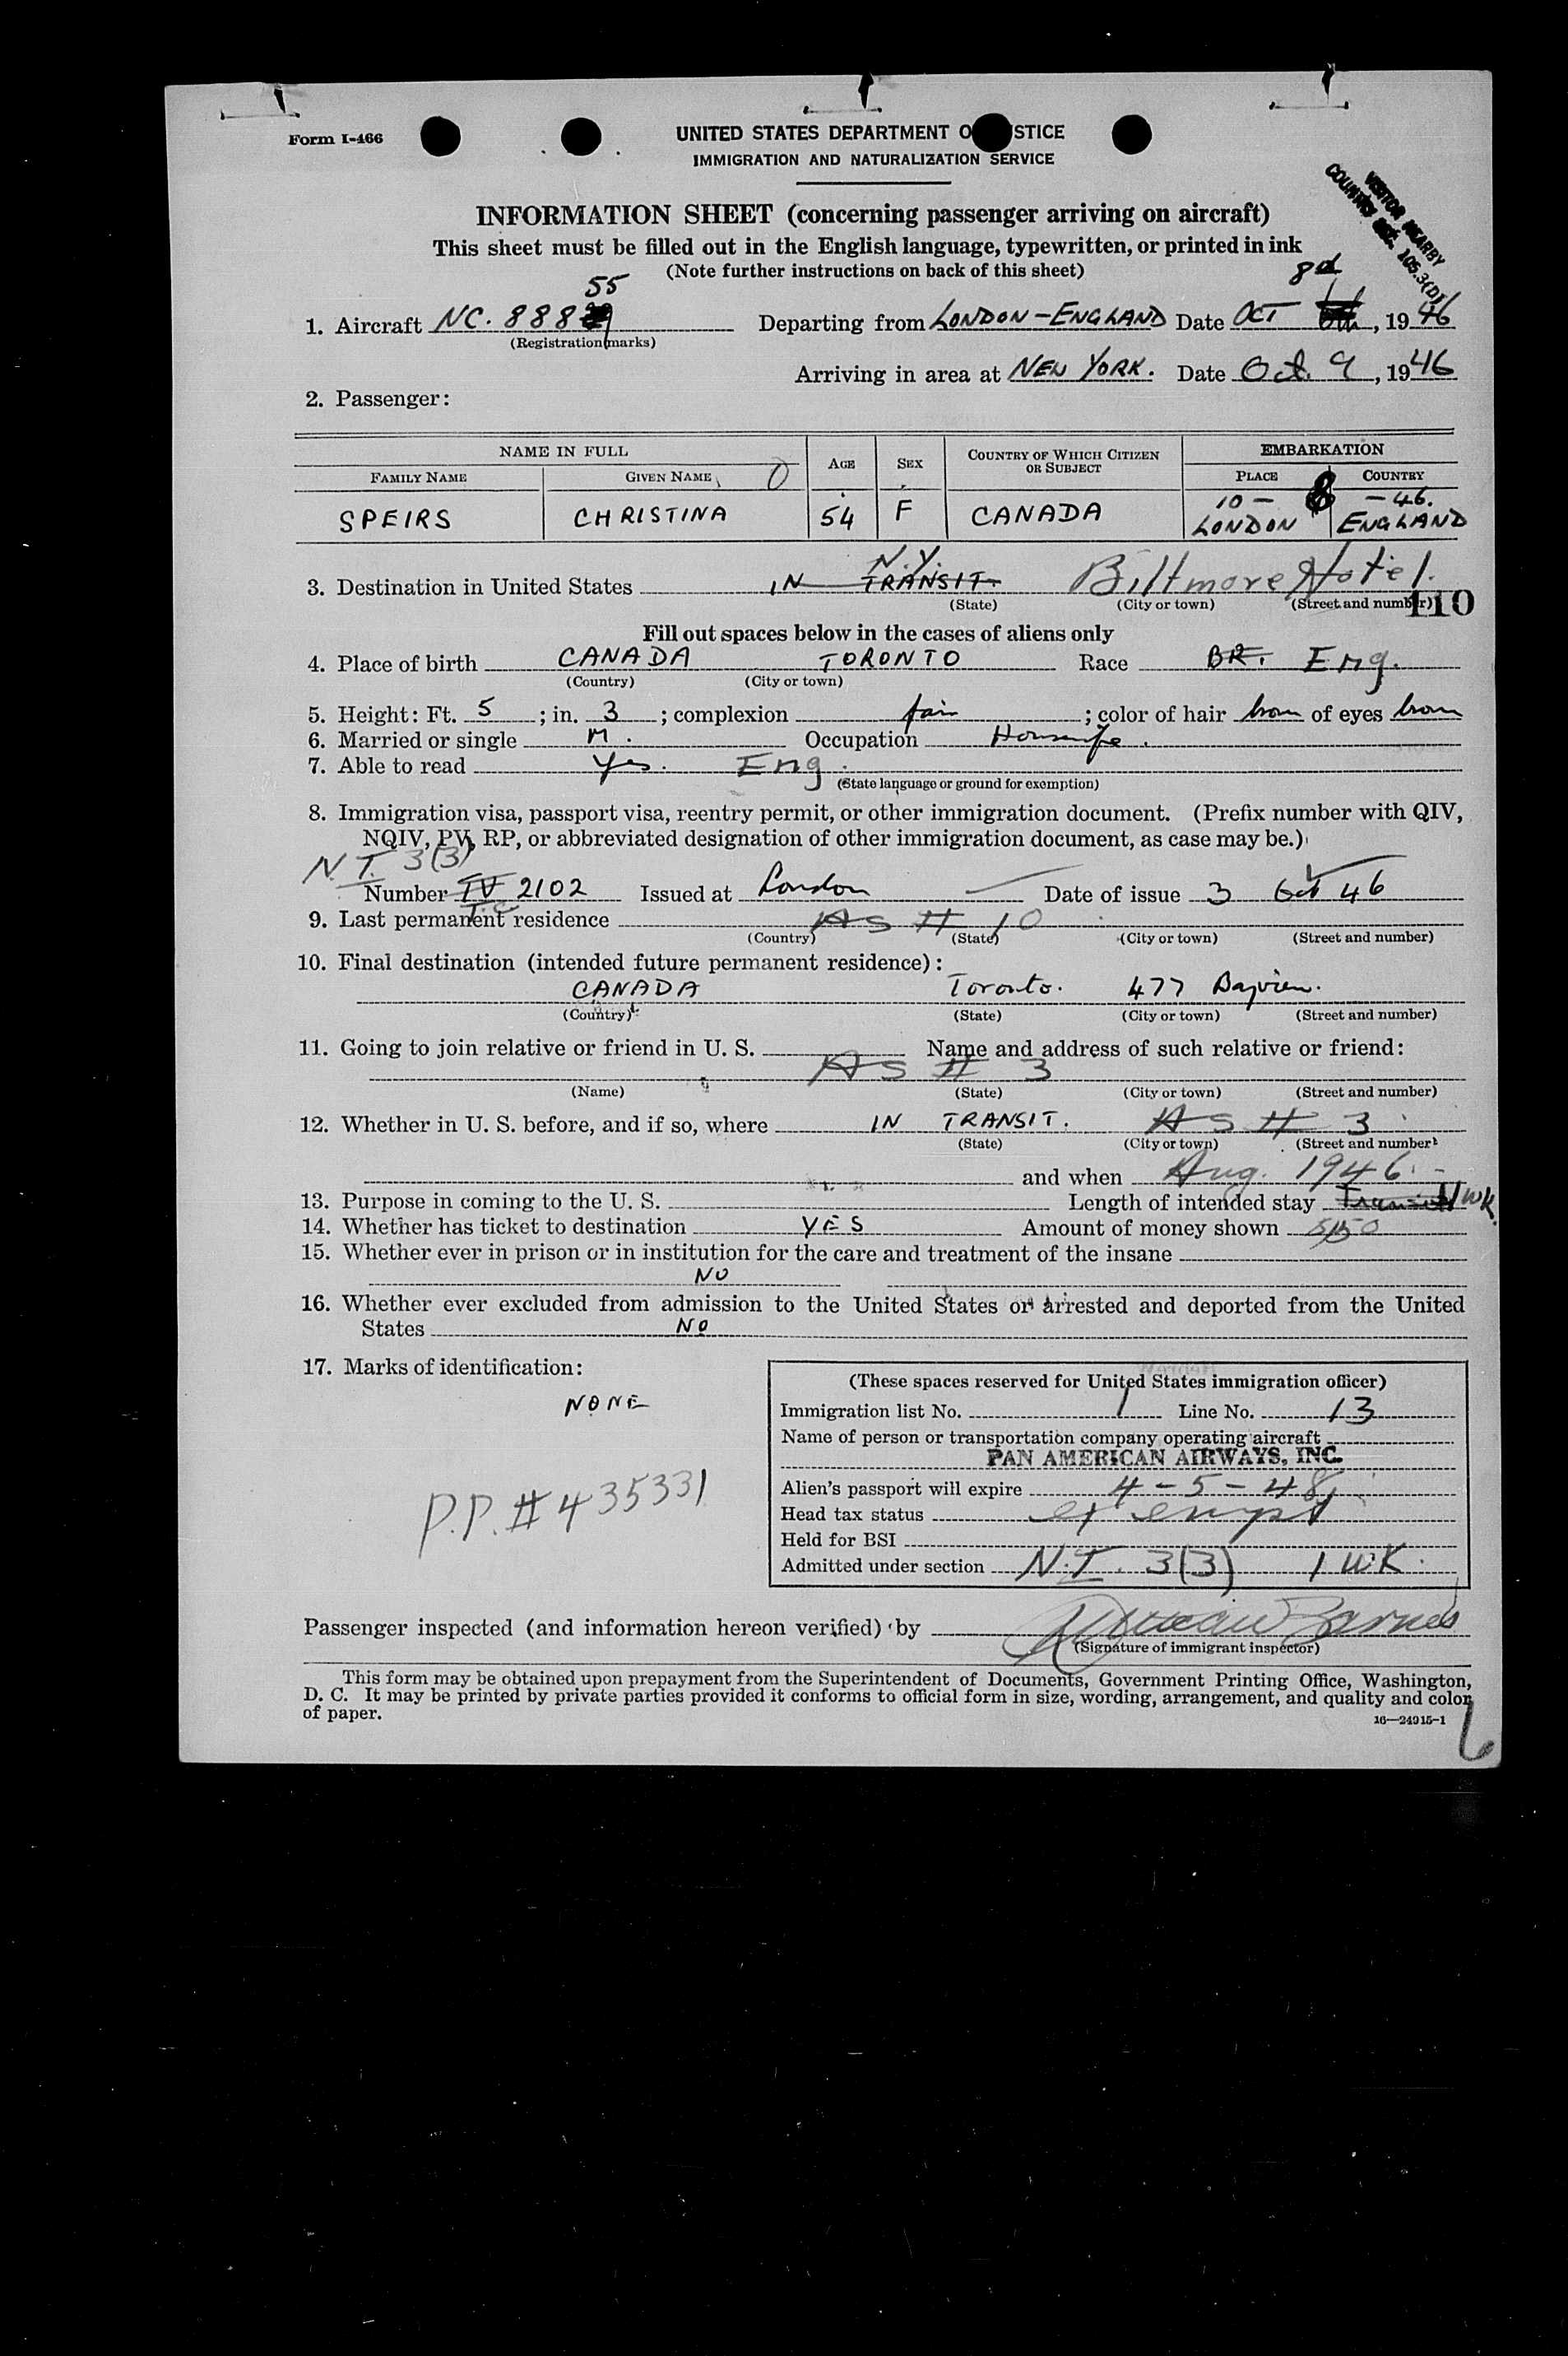 Form I-466
UNITED STATES DEPARTMENT O STICE
IMMIGRATION AND NATURALIZATION SERVICE
VISITOR NEARBY
COUNTRY SEC. 105.3(D)
INFORMATION SHEET (concerning passenger arriving on aircraft)
This sheet must be filled out in the English language, typewritten, or printed in ink
(Note further instructions on back of this sheet)
55 8th
1. Aircraft NC. 888 Departing from LONDON-ENGLAND Date OCT , 1946
(Registration marks)
Arriving in area at NEW YORK. Date Oct. 9, 1946
2. Passenger:
NAME IN FULL AGE SEX COUNTRY OF WHICH CITIZEN OR SUBJECT EMBARKATION
FAMILY NAME GIVEN NAME PLACE COUNTRY
10- 8 -46.
SPEIRS CHRISTINA 54 F CANADA LONDON ENGLAND
N.Y.
3. Destination in United States IN TRANSIT. Biltmore Hotel.
(State) (City or town) (Street and number) 110
Fill out spaces below in the cases of aliens only
4. Place of birth CANADA TORONTO Race BR. Eng.
(Country) (City or town)
5. Height: Ft. 5; in. 3; complexion fair; color of hair brown of eyes brown
6. Married or single M. Occupation Housewife.
7. Able to read Yes. Eng.
(State language or ground for exemption)
8. Immigration visa, passport visa, reentry permit, or other immigration document. (Prefix number with QIV,
NQIV, PV, RP, or abbreviated designation of other immigration document, as case may be.)
N.I. 3(3)
Number TV 2102 Issued at London Date of issue 3 Oct 46
T.C.
9. Last permanent residence AS # 10
(Country) (State) (City or town) (Street and number)
10. Final destination (intended future permanent residence):
CANADA Toronto. 477 Bayview.
(Country) (State) (City or town) (Street and number)
11. Going to join relative or friend in U. S. Name and address of such relative or friend:
AS # 3
(Name) (State) (City or town) (Street and number)
12. Whether in U. S. before, and if so, where IN TRANSIT. AS # 3
(State) (City or town) (Street and number)
and when Aug. 1946
13. Purpose in coming to the U. S. Length of intended stay Transit 1 WK.
14. Whether has ticket to destination YES Amount of money shown
15. Whether ever in prison or in institution for the care and treatment of the insane
NO
16. Whether ever excluded from admission to the United States or arrested and deported from the United
States NO
17. Marks of identification:
NONE
P.P. # 435331
(These spaces reserved for United States immigration officer)
Immigration list No. 1 Line No. 13
Name of person or transportation company operating aircraft
PAN AMERICAN AIRWAYS, INC.
Alien's passport will expire 4-5-48
Head tax status exempt
Held for BSI
Admitted under section N.I. 3(3) 1 WK.
Passenger inspected (and information hereon verified) by Barnes
(Signature of immigrant inspector)
This form may be obtained upon prepayment from the Superintendent of Documents, Government Printing Office, Washington,
D. C. It may be printed by private parties provided it conforms to official form in size, wording, arrangement, and quality and color
of paper.
16—24915-1
6